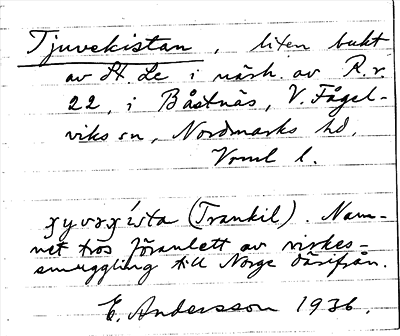 Tjuvekistan, liten bukt
av St. Le i närh. av R.r.
22, i Båstnäs, V. Fågel-
viks sn, Nordmarks hd,
Vrml l.
(Trankil). Nam-
net tros föranlett av virkes-
smuggling till Norge därifrån.
E. Andersson 1936.